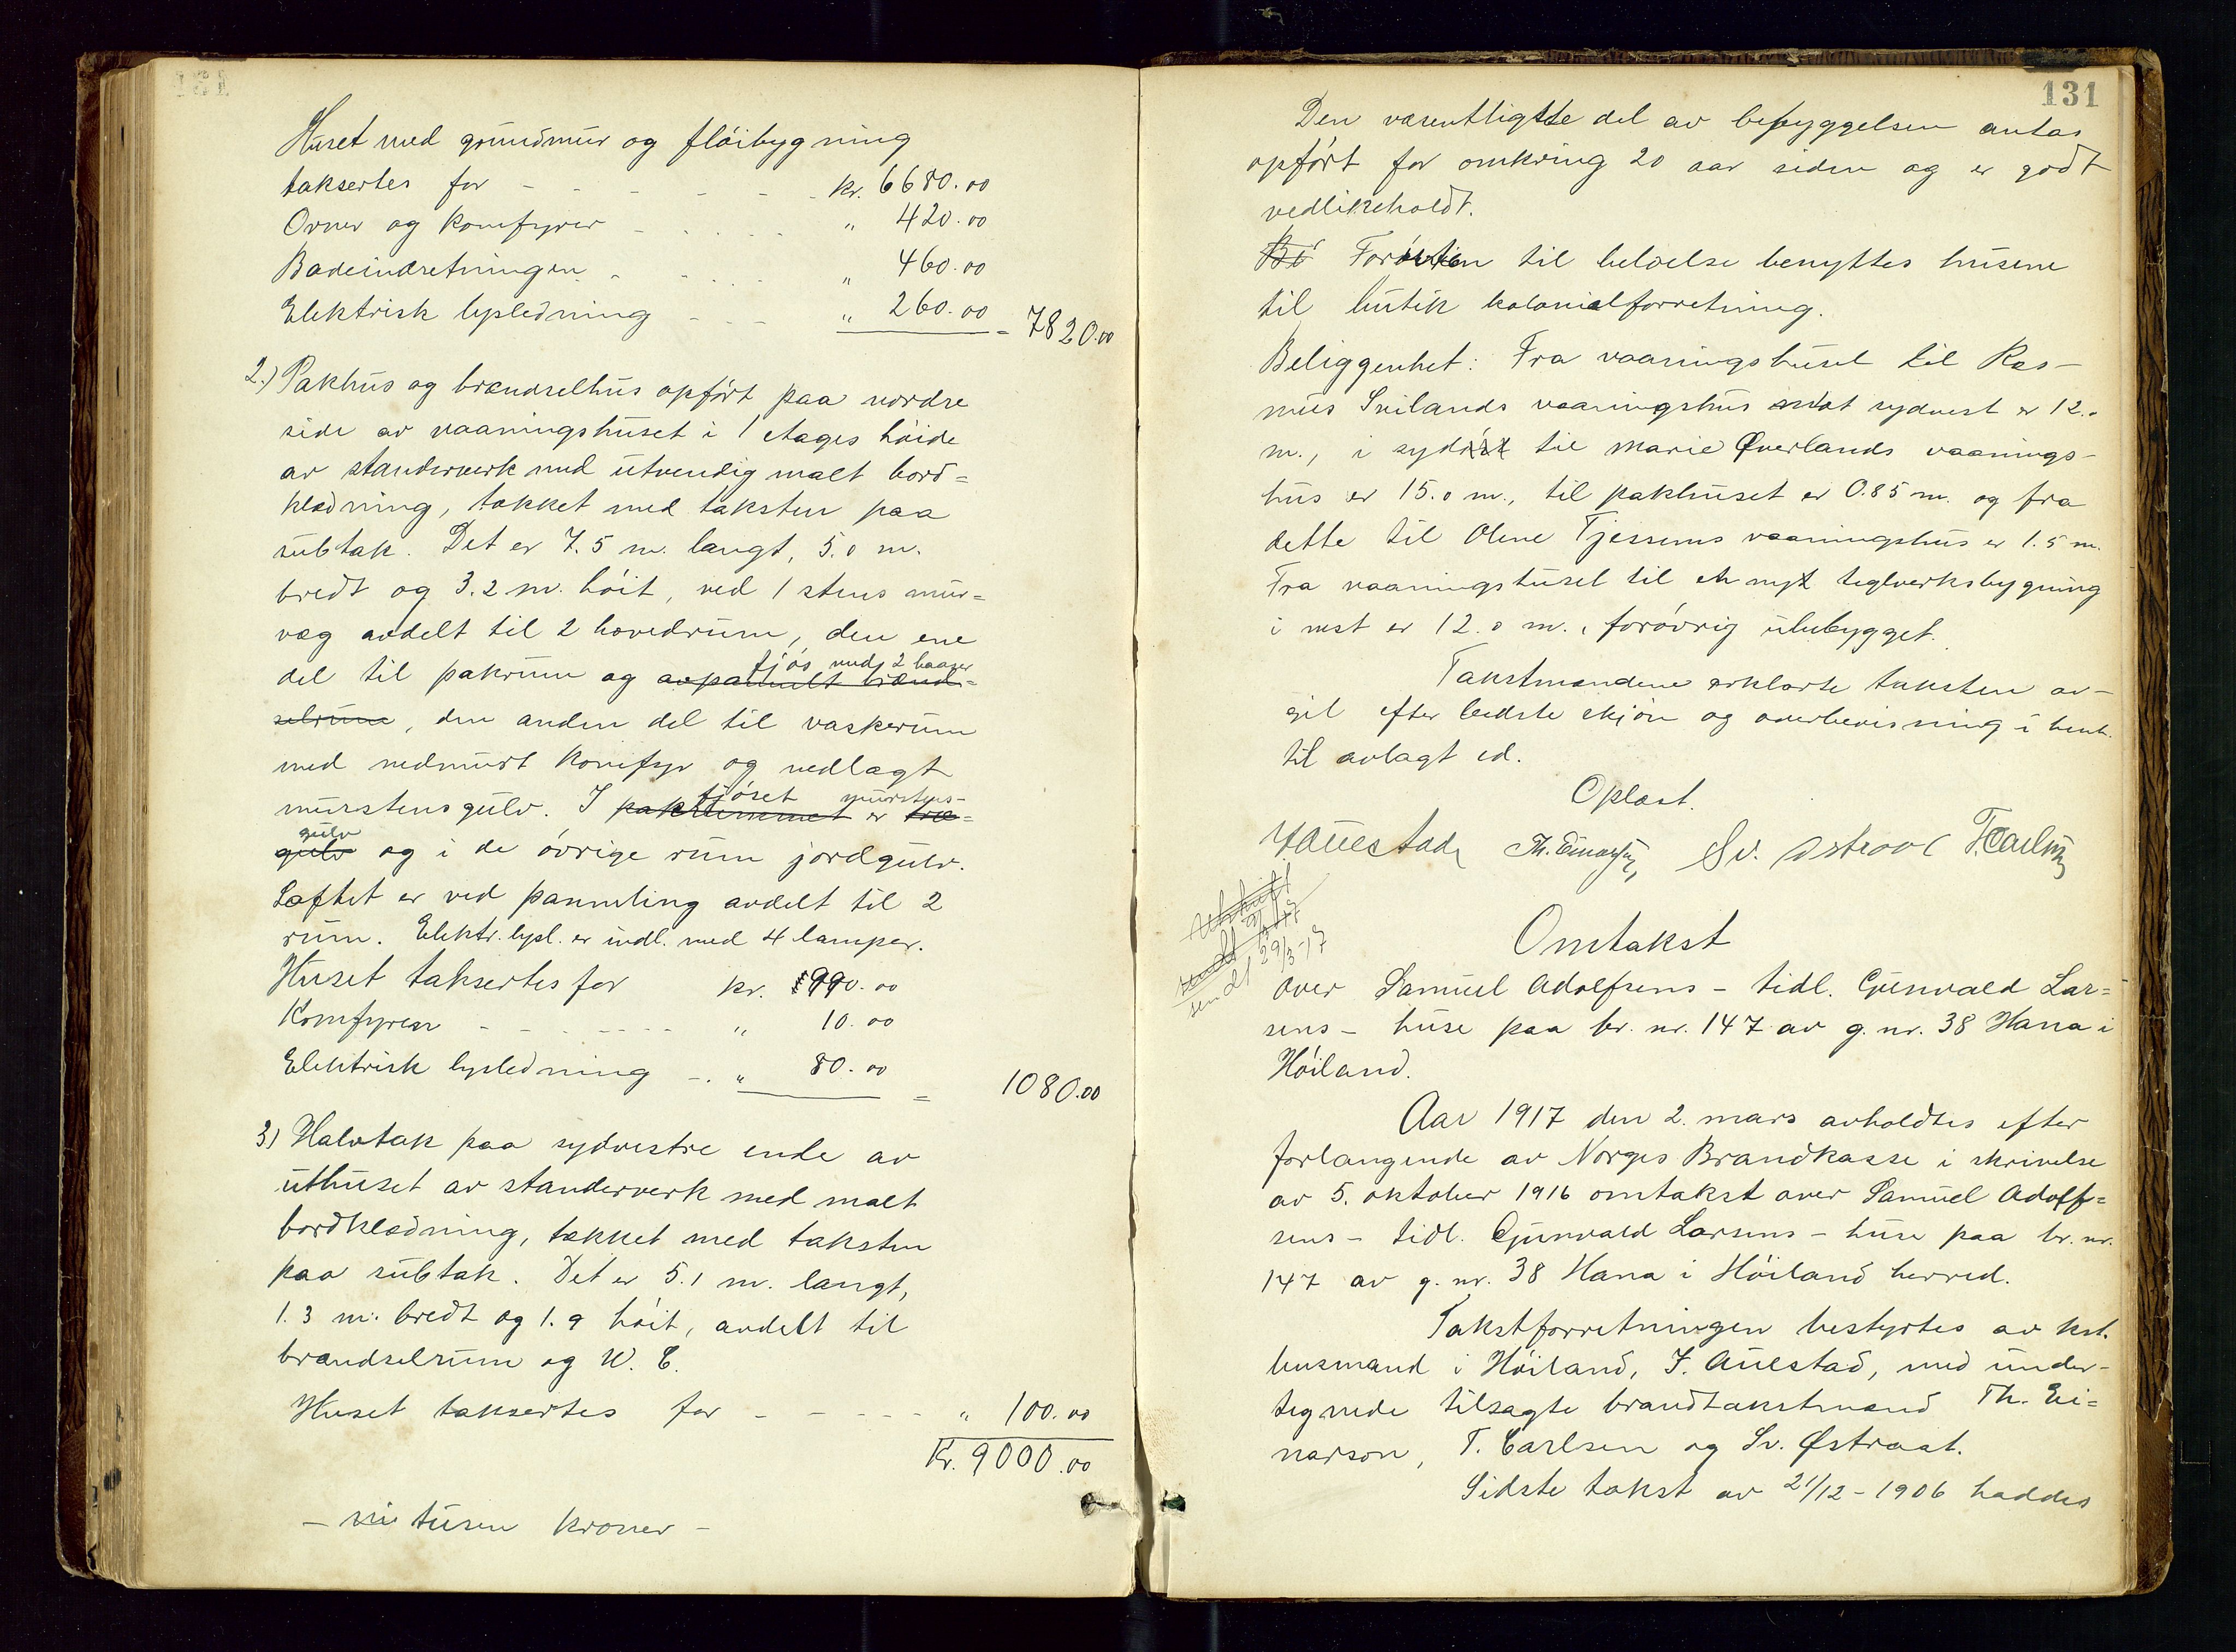 Huset med grundmur og fløibygning
taksertes for - - - - - - kr. 6680.00
Ovner og komfyrer - - - - - " 420.00
Badeindretningen - - - - " 460.00
Elektrisk lysledning - - - " 260.00 = 7820.00
2.) Pakhus og brændselhus opført paa nordre
side av vaaningshuset i 1 etages høide
av standerverk med utvendig malt bord=
klædning, tækket med taksten paa
subtak. Det er 7.5 m. langt, 5.0 m.
bredt og 3.2 m. høit, ved 1 stens mur=
væg avdelt til 2 hovedrum, den ene
fjøs med 2 baaser
del til pakrum og avpanelt brænd=
selrum, den anden del til vaskerum
med nedmurt komfyr og nedlagt
fjøset murstens-
murstensgulv. I pakrummet er træ=
gulv
gulv og i de øvrige rum jordgulv.
Loftet er ved panneling avdelt til 2
rum. Elektr. lysl. er indl. med 4 lamper.
Huset taksertes for kr. 990.00
Komfyren - - - - - - - " 10.00
Elektrisk lysledning - . " 80.00 = 1080.00
3) Halvtak paa sydvestre ende av
uthuset av standerverk med malt
bordklædning, tækket med taksten
paa subtak. Det er 5.1 m. langt,
1.3 m. bredt og 1.9 høit, avdelt til
brændselrum og W. C.
Huset taksertes for - - - - - " 100.00
Kr. 9000.00
- ni tusen kroner -
131
Den væsentligste del av bebyggelsen antas
opført for omkring 20 aar siden og er godt
vedlikeholdt.
Bé Foruten til beboelse benyttes husene
til butik kolonialforretning.
Beliggenhet: Fra vaaningshuset til Ras-
mus Snilands vaaningshus mot sydvest er 12.0
m., i sydøst til Marie Øverlands vaanings-
hus er 15.0 m., til pakhuset er 0.85 m. og fra
dette til Olene Tjessems vaaningshus er 1.5 m.
Fra vaaningshuset til en nyt teglverksbygning
i vest er 12.0 m., forøvrig ulubygget.
Takstmændene erklærte taksten av-
git efter bedste skjøn og overbevisning i henh.
til avlagt ed.
Oplæst.
J. Auestad, Th. Einarson, Sv. Østraat T. Carlsen
Utskrift
sendt 29/3-17
Omtakst
over Samuel Adolfsens - tidl. Gunvald Lar=
sens - huse paa br. nr. 147 av g. nr. 38 Hana i
Høiland.
Aar 1917 den 2. mars avholdtes efter
forlangende av Norges Brandkasse i skrivelse
av 5. oktober 1916 omtakst over Samuel Adolf=
sens - tidl. Gunvald Larsens - huse paa br. nr.
147 av g. nr. 38 Hana i Høiland herred.
Takstforretningen bestyrtes av kst.
lensmand i Høiland, J. Auestad, med under-
tegnede tilsagte brandtakstmænd Th. Ei=
narson, T. Carlsen og Sv. Østraat.
Sidste takst av 21/12-1906 haddes